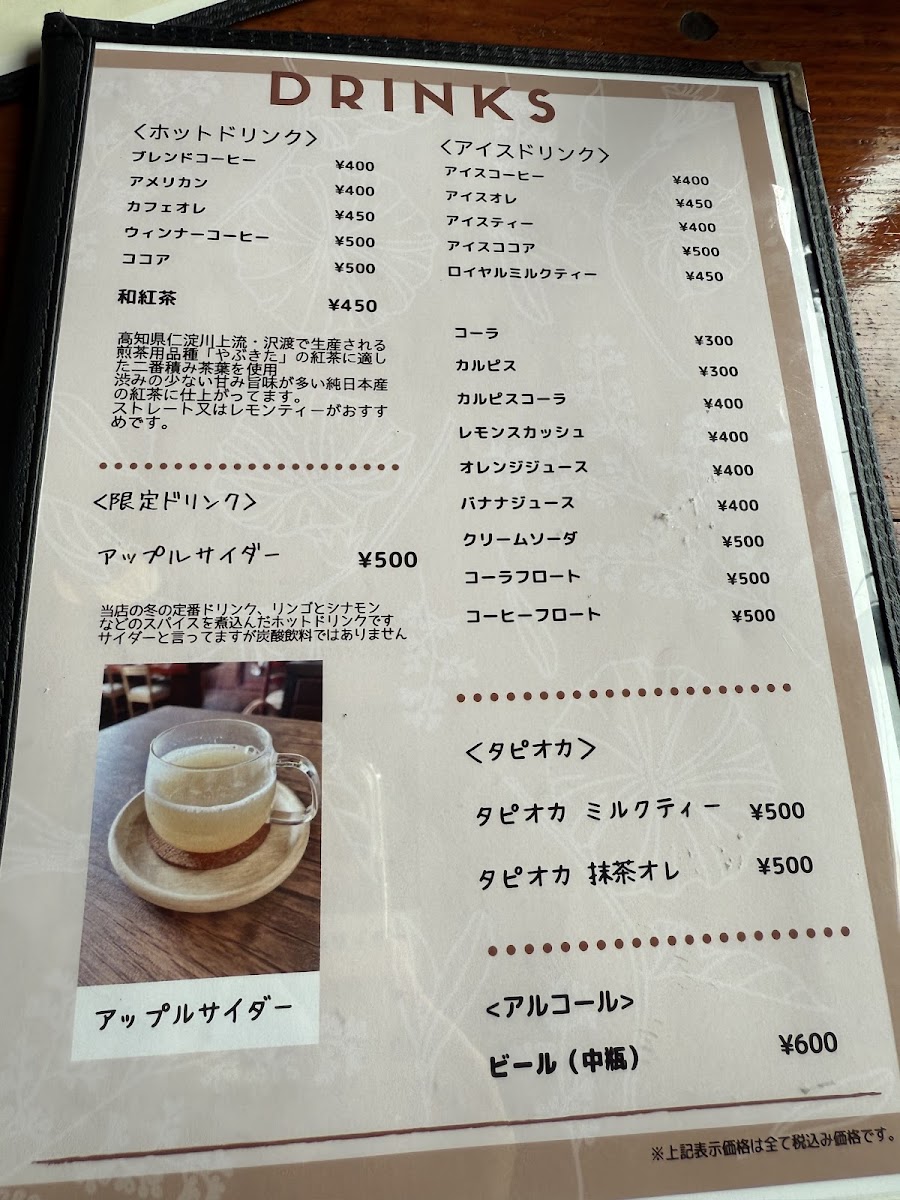 DRINKS
<ホットドリンク>
ブレンドコーヒー ¥400
アメリカン ¥400
カフェオレ ¥450
ウィンナーコーヒー ¥500
ココア ¥500
和紅茶 ¥450
高知県仁淀川上流・沢渡で生産される
煎茶用品種「やぶきた」の紅茶に適し
た二番積み茶葉を使用
渋みの少ない甘み旨味が多い純日本産
の紅茶に仕上がってます。
ストレート又はレモンティーがおすす
めです。
<限定ドリンク>
アップルサイダー ¥500
当店の冬の定番ドリンク、リンゴとシナモン
などのスパイスを煮込んだホットドリンクです
サイダーと言ってますが炭酸飲料ではありません
アップルサイダー
<アイスドリンク>
アイスコーヒー ¥400
アイスオレ ¥450
アイスティー ¥400
アイスココア ¥500
ロイヤルミルクティー ¥450
コーラ ¥300
カルピス ¥300
カルピスコーラ ¥400
レモンスカッシュ ¥400
オレンジジュース ¥400
バナナジュース ¥400
クリームソーダ ¥500
コーラフロート ¥500
コーヒーフロート ¥500
<タピオカ>
タピオカ ミルクティー ¥500
タピオカ 抹茶オレ ¥500
<アルコール>
ビール（中瓶） ¥600
※上記表示価格は全て税込み価格です。